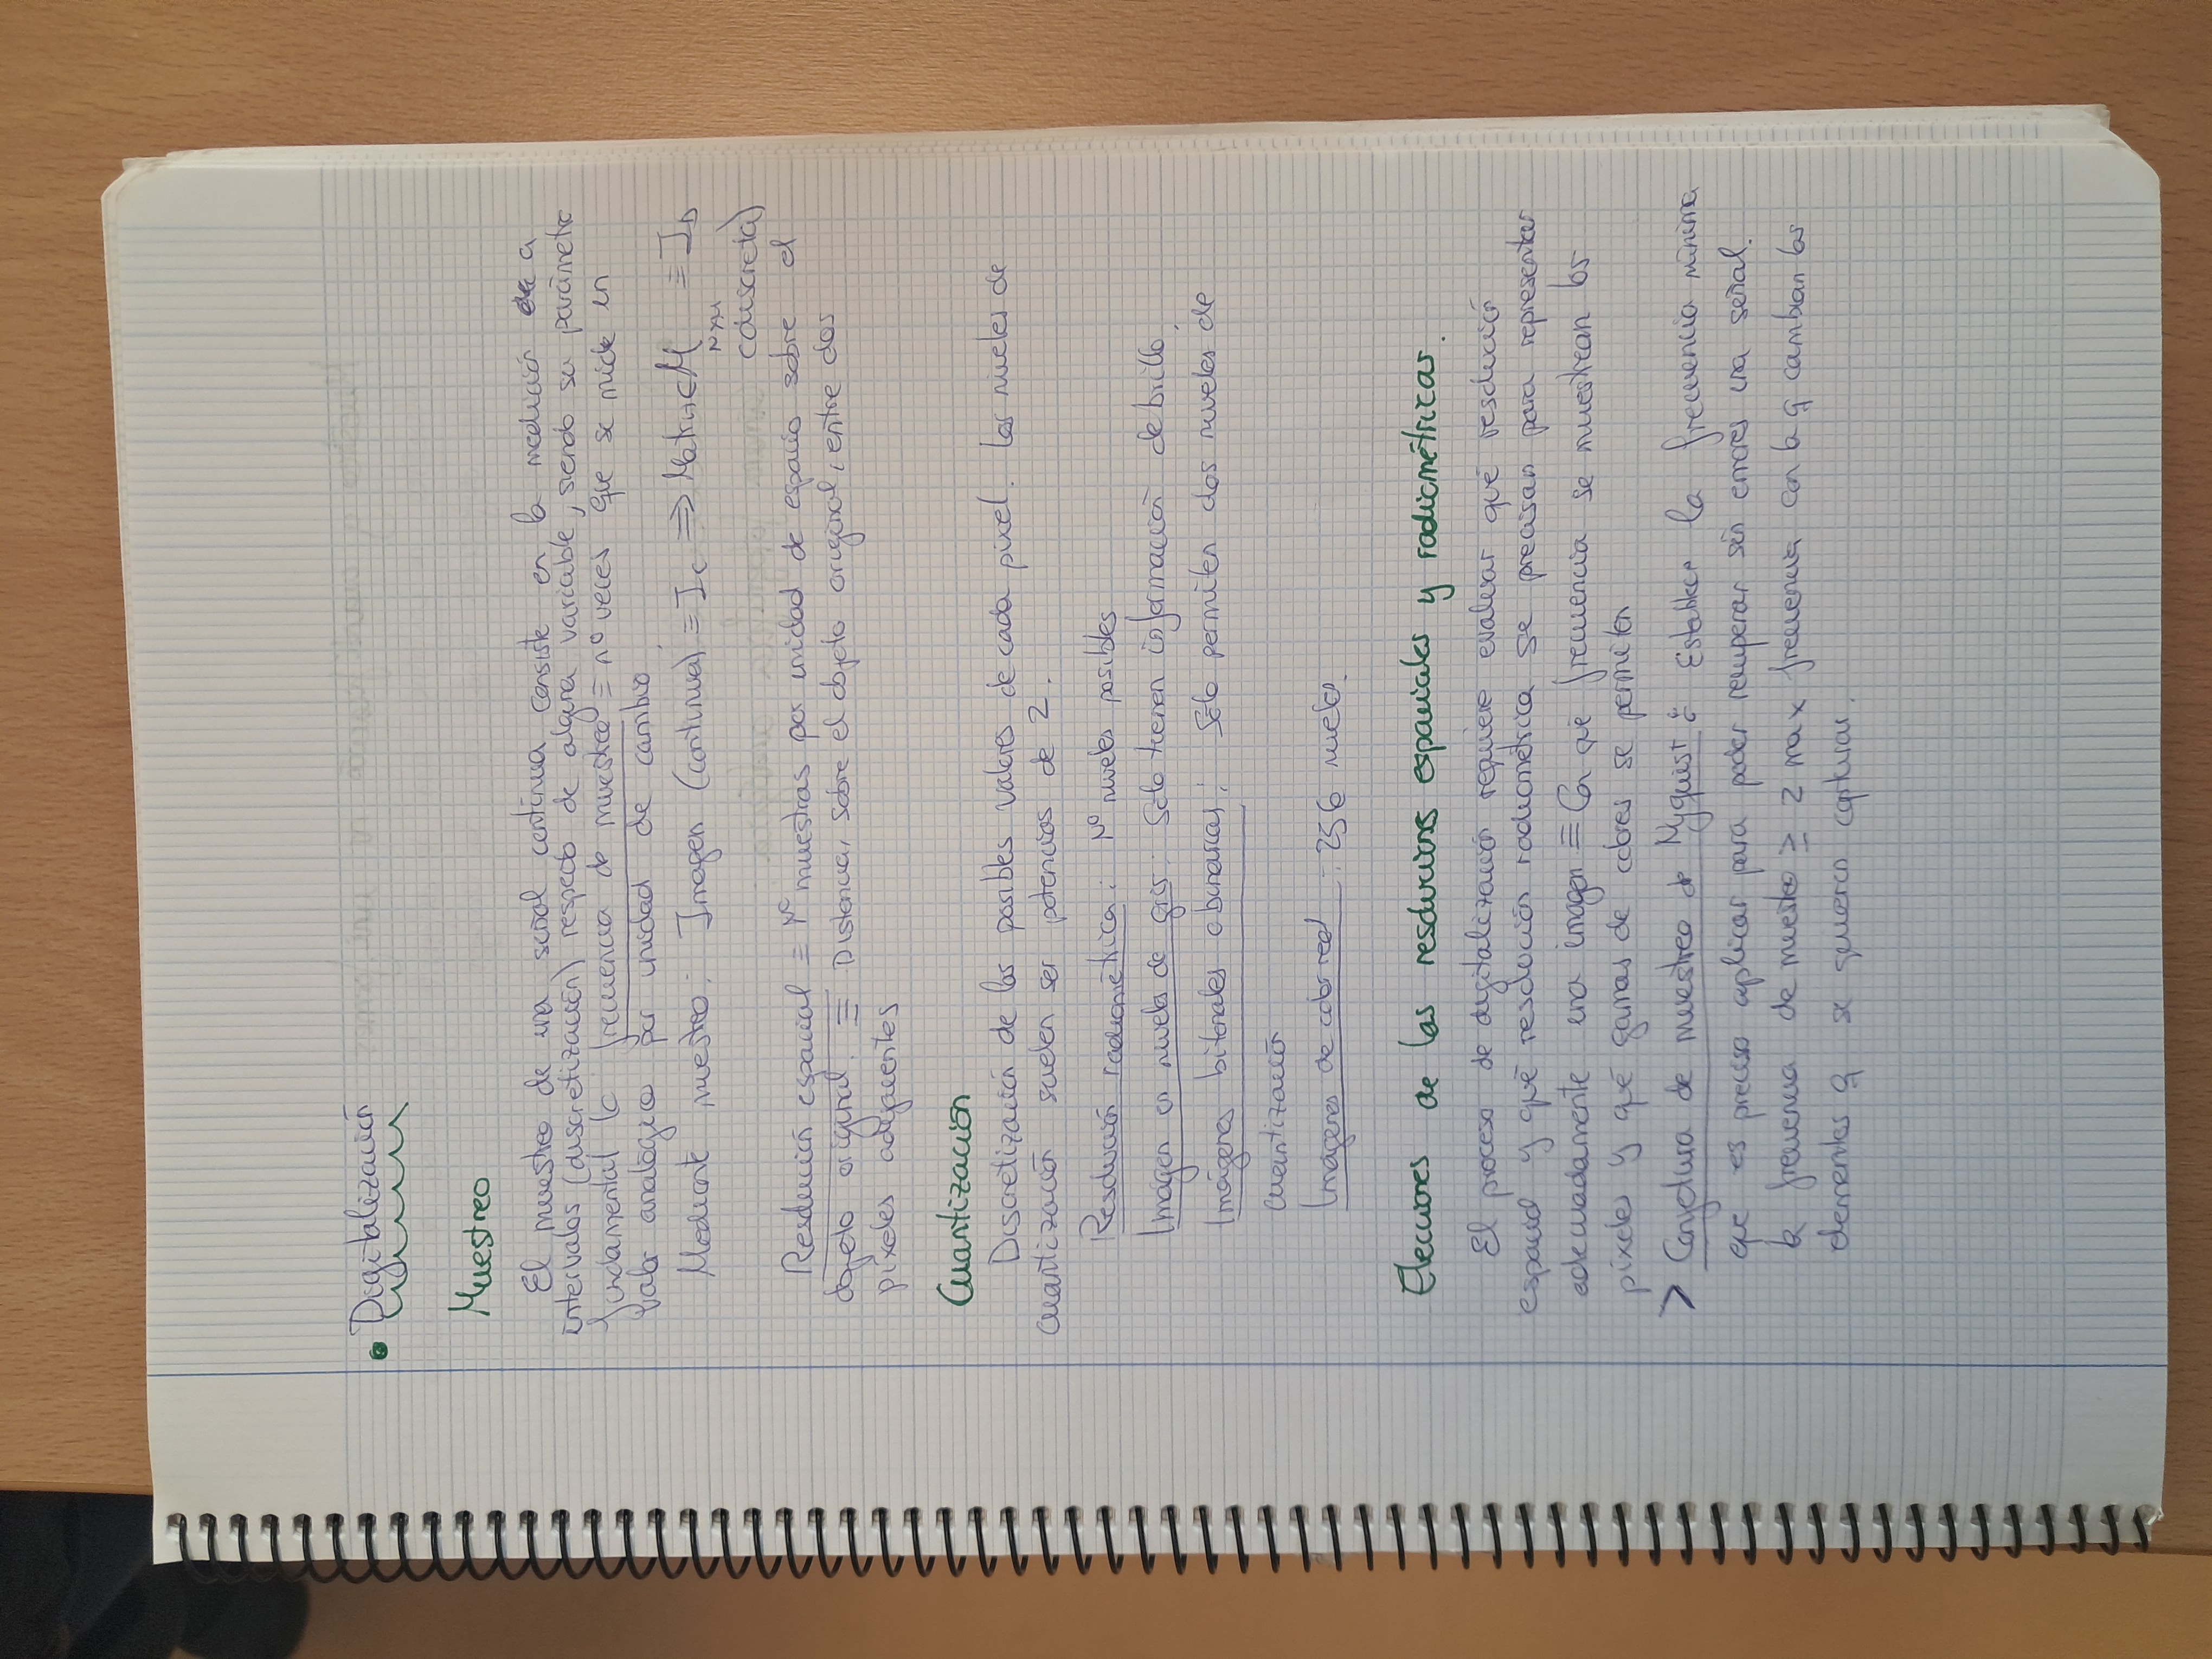 • Digitalización
Muestreo
El muestreo de una señal continua consiste en la medición a
intervalos (discretización) respecto de alguna variable, siendo su parámetro
fundamental la frecuencia de muestreo ≡ nº veces que se mide un
valor analógico por unidad de cambio.
Mediante muestreo: Imagen (continua) ≡ I_C ⇒ Matriz ∈ M_NxM ≡ I_D
(discreta)
Resolución espacial ≡ Nº muestras por unidad de espacio sobre el
objeto original. ≡ Distancia, sobre el objeto original, entre dos
píxeles adyacentes
Cuantización
Discretización de los posibles valores de cada pixel. Los niveles de
cuantización suelen ser potencias de 2.
Resolución radiométrica: Nº niveles posibles
Imágen en niveles de gris: Sólo tienen información de brillo.
Imágenes bitonales o binarias: Sólo permiten dos niveles de
cuantización
Imágenes de color real: 256 niveles.
Elecciones de las resoluciones espaciales y radiométricas.
El proceso de digitalización requiere evaluar qué resolución
espacial y qué resolución radiométrica se precisan para representar
adecuadamente una imagen ≡ Con qué frecuencia se muestrean los
píxeles y qué gamas de colores se permiten
> Conjetura de muestreo de Nyquist: Establece la frecuencia mínima
que es preciso aplicar para poder recuperar sin errores una señal.
la frecuencia de muestreo ≥ 2 max frecuencia con la q cambian los
elementos q se quieren capturar.